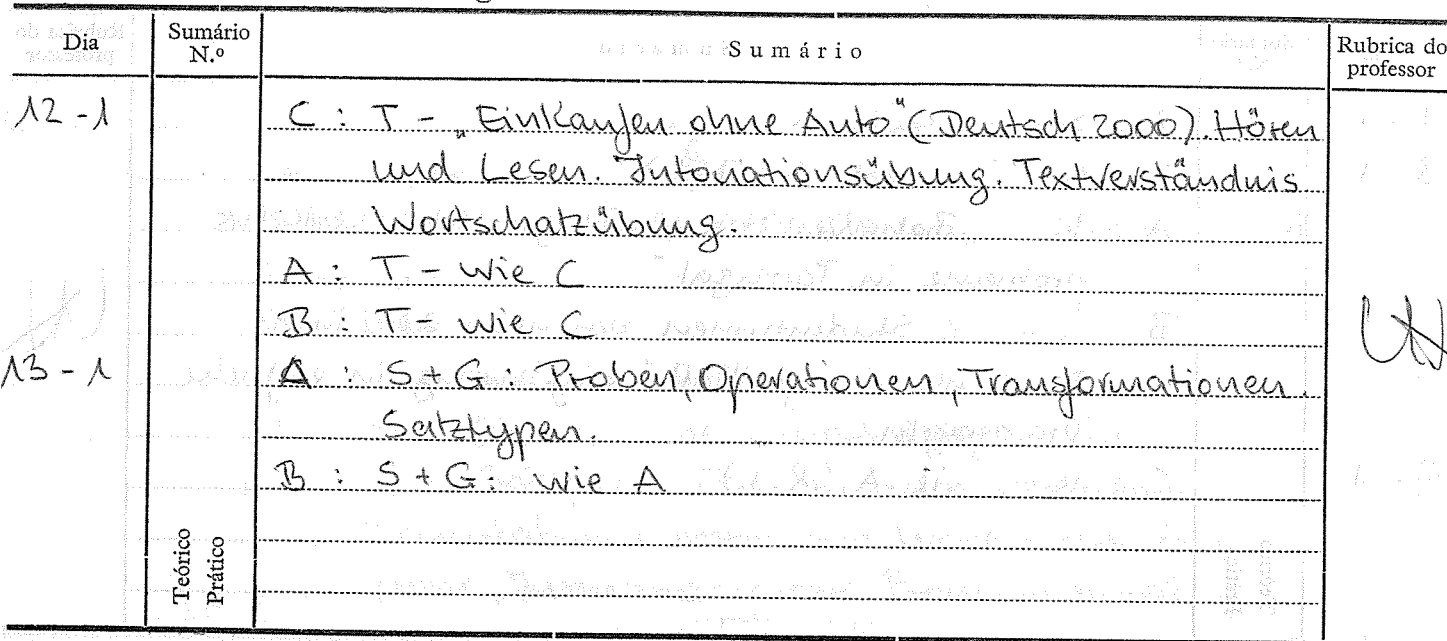 Dia Sumário N.º Sumário Rubrica do professor
12-1 C : T - „Einkaufen ohne Auto" (Deutsch 2000). Hören
und Lesen. Intonationsübung. Textverständnis
Wortschatzübung.
A : T - wie C
B : T - wie C
13-1 A : S + G : Proben, Operationen, Transformationen.
Satztypen.
B : S + G : wie A
Teórico
Prático